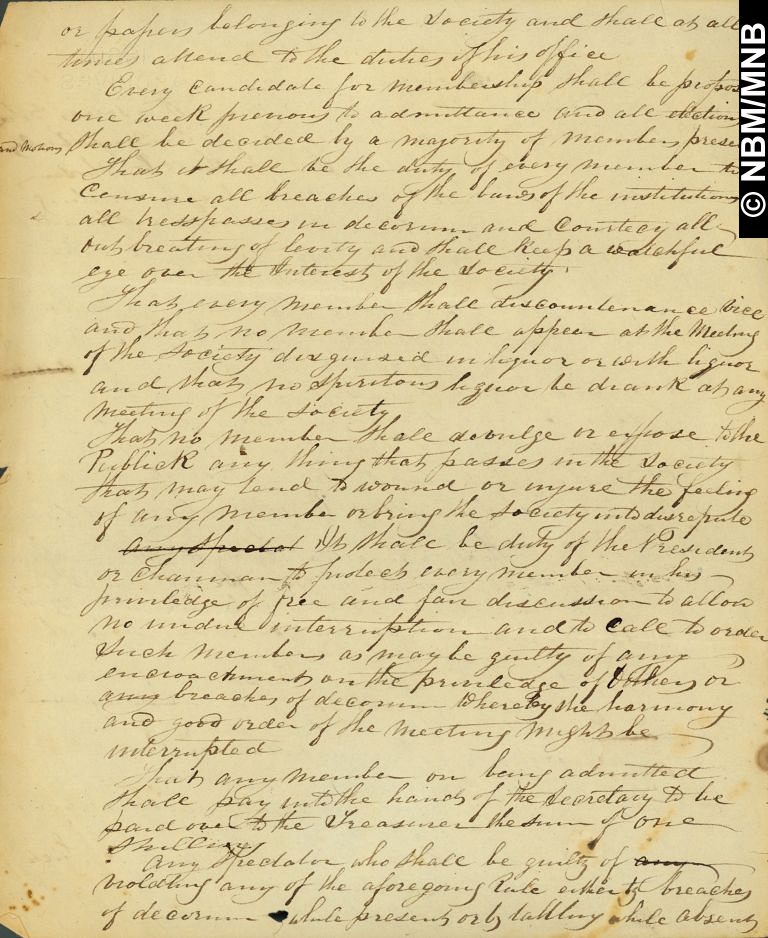 or papers belonging to the Society and shall at all
times attend to the duties of his office
Every Candidate for membership shall be propos
one week previous to admittance and all election
and motions shall be decided by a majority of members prese
That it shall be the duty of every member to
Censure all breaches of the laws of the institutions
all tresspasses in decorum and Courtecy all
out breating of levity and shall keep a watchful
eye over the Interest of the Society
That every member shall discountenance vice
and that no member shall appear at the Meeting
of the Society disguised in liquor or with liquor
and that no spiritous liquor be drank at any
meeting of the Society
That no member shall devulge or expose to the
Publick any thing that passes in the Society
that may tend to wound or injure the feeling
of any member or bring the Society into disrepute
any Spectat It shall be duty of the President
or Chairman to protect every member in his
priviledge of free and fair discussion to allow
no undue interruption and to Call to order
such members as may be guilty of any
encroachment on the priviledge of Others or
any breaches of decorum whereby the harmony
and good order of the meeting might be
interrupted
That any member on being admitted
shall pay into the hands of the Secretary to be
paid over to the Treasurer the sum of one
Shilling
Any Spectator who shall be guilty of any
violating any of the aforegoing Rule either by breaches
of decorum while present or by tattling while absent
© NBM/MNB